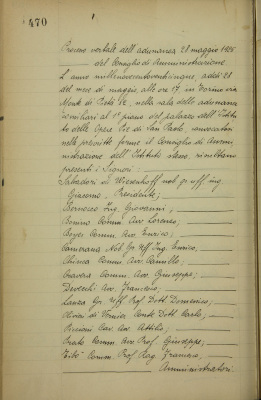 470
Processo verbale dell'adunanza 28 maggio 1925
del Consiglio di Amministrazione
L'anno millenovecentoventicinque, addì 28
del mese di maggio, alle ore 17 in Torino via
Monte di Pietà 32, nella sala delle adunanze
consiliari al 1° piano del palazzo dell'Istitu
to delle Opere Pie di San Paolo, convocato
nelle prescritte forme il Consiglio di Ammi
nistrazione dell'Istituto stesso, risultano
presenti i Signori:
Salvadori di Wiesenhoff nob. gr. uff. ing.
Giacomo, Presidente;
Bernocco Ing. Giovanni,
Bonino Comm. Avv. Lorenzo;
Boyer Comm. Avv. Enrico;
Camerana Nob. Gr. Uff. Ing. Enrico;
Chiesa Comm. Avv. Camillo;
Cravero Comm. Avv. Giuseppe;
Devecchi Avv. Francesco;
Lanza Gr. Uff. Prof. Dott. Domenico;
Olivieri di Vernier Conte Dott. Carlo;
Piccioni Cav. Avv. Attilio;
Prato Comm. Avv. Prof. Giuseppe;
Comm. Prof. Rag.
Amministratori.